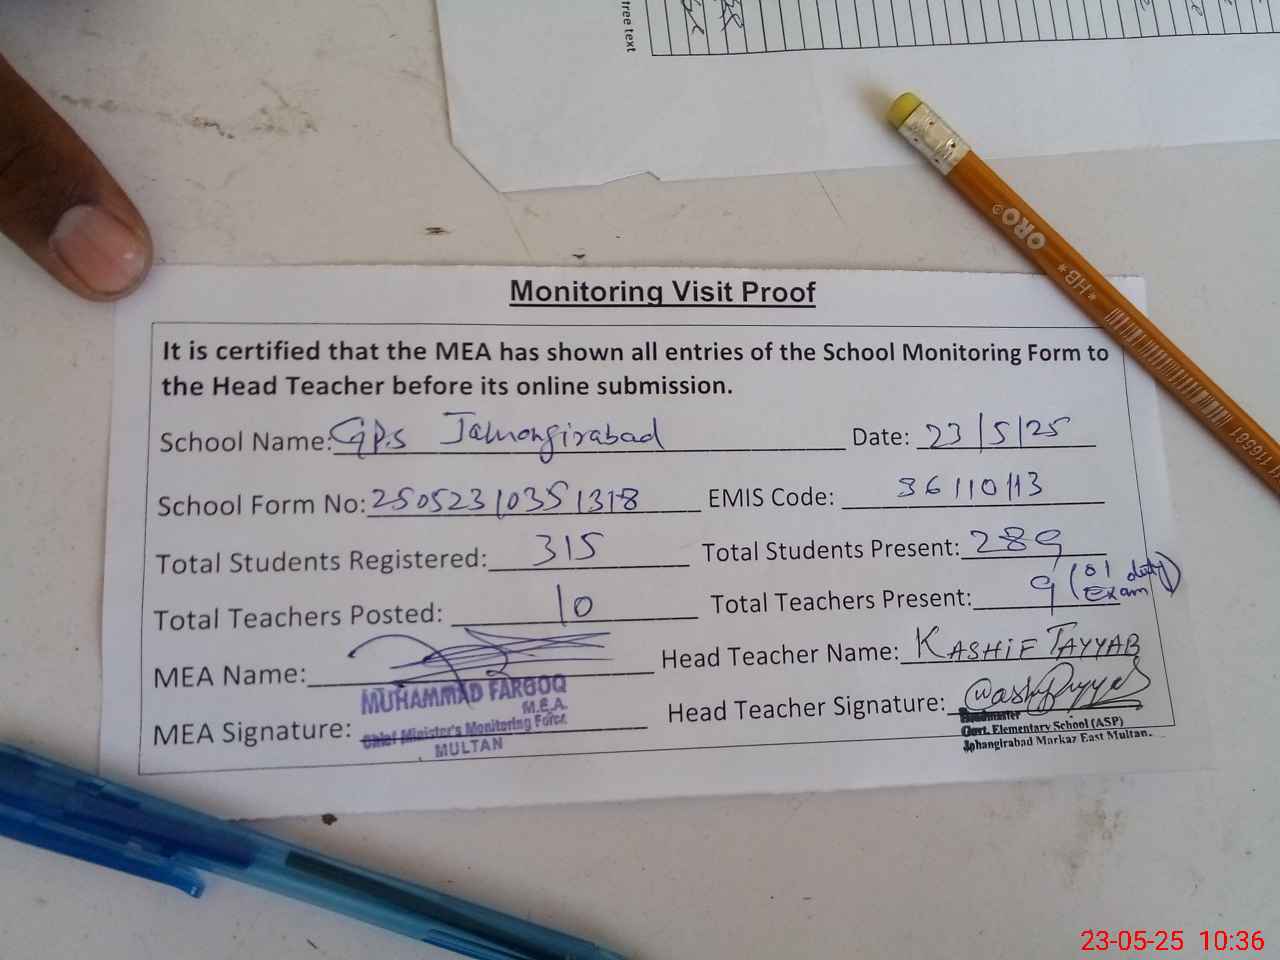 free text
ORO
*HB*
116561
Monitoring Visit Proof
It is certified that the MEA has shown all entries of the School Monitoring Form to
the Head Teacher before its online submission.
School Name: GPS Jahangirabad Date: 23/5/25
School Form No: 25052310351318 EMIS Code: 36110113
Total Students Registered: 315 Total Students Present: 289
Total Teachers Posted: 10 Total Teachers Present: 9 (01 Exam duty)
MEA Name: Head Teacher Name: KASHIF TAYYAB
MUHAMMAD FAROOQ
M.E.A.
MEA Signature: Chief Minister's Monitoring Force Head Teacher Signature:
MULTAN
Headmaster
Govt. Elementary School (ASP)
Jahangirabad Markaz East Multan.
23-05-25 10:36